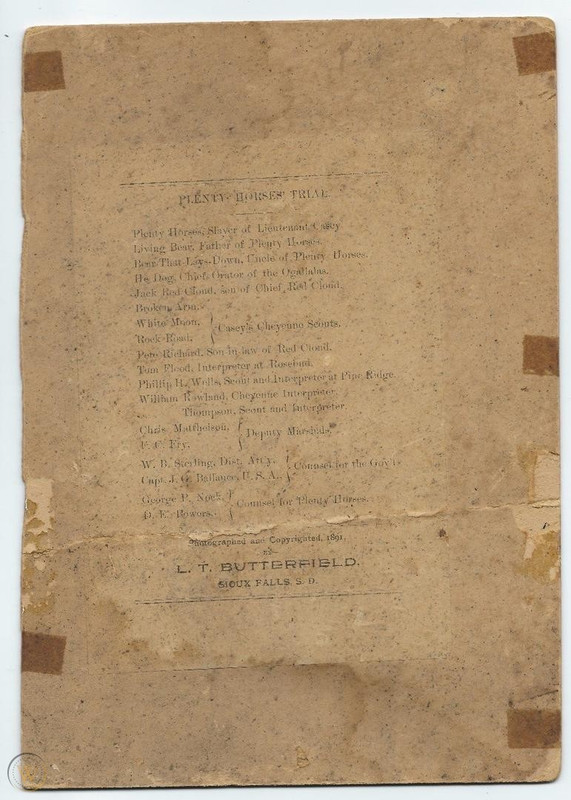 PLENTY HORSES' TRIAL
Plenty Horses, Slayer of Lieutenant Casey
Living Bear, Father of Plenty Horses.
Bear-That-Lays-Down, Uncle of Plenty Horses.
He Dog, Chief Orator of the Ogallalas.
Jack Red Cloud, Son of Chief Red Cloud.
Broken Arm.
White Moon, } Casey's Cheyenne Scouts.
Rock Road,
Pete Richard, Son-in-law of Red Cloud.
Tom Flood, Interpreter at Rosebud.
Phillip H. Wells, Scout and Interpreter at Pine Ridge.
William Rowland, Cheyenne Interpreter.
Thompson, Scout and Interpreter.
Chris Mattheison, } Deputy Marshals.
F. C. Fry,
W. B. Sterling, Dist. Att'y. } Counsel for the Gov't.
Capt. J. G. Ballance, U. S. A.,
George P. Nock, } Counsel for Plenty Horses.
D. E. Powers,
Photographed and Copyrighted, 1891,
BY
L. T. BUTTERFIELD.
SIOUX FALLS, S. D.